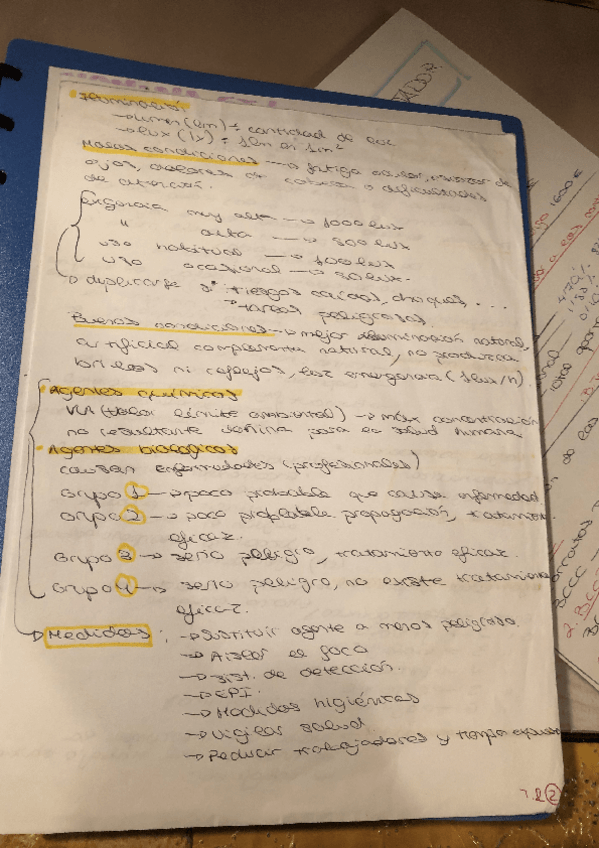 Iluminación:
→ lumen (lm) : cantidad de luz
→ lux (lx) : 1 lm en 1m²
Malas condiciones → fatiga ocular, de
ojos, dolores de cabeza o dificultades
de atención.
exigencia muy alta → 1000 lux
" alta → 500 lux
uso habitual → 100 lux
uso ocasional → 50 lux.
→ duplicarse si riesgos caídas, choques ...
→ tareas peligrosas.
Buenas condiciones → mejor iluminación natural,
artificial complementa natural, no produzca
brillos ni reflejos, luz emergencia (1 lux/h).
Agentes químicos
VLA (valor límite ambiental) → máx concentración
no resultante dañina para la salud humana
Agentes biológicos
causan enfermedades (profesionales)
Grupo 1 → poco probable que cause infermedad
Grupo 2 → poco probable propagación, tratamien.
eficaz.
Grupo 3 → serio peligro, tratamiento eficaz.
Grupo 4 → serio peligro, no existe tratamien
eficaz.
→ Medidas : → Sustituir agente a menos peligroso.
→ Aislar el foco
→ Sist. de detección.
→ EPI.
→ Medidas higiénicas
→ Vigilar salud
→ Reducir trabajadores y tiempo
T.2 2
TADOR
1600 €
4,70%
BCCC
2. BCC